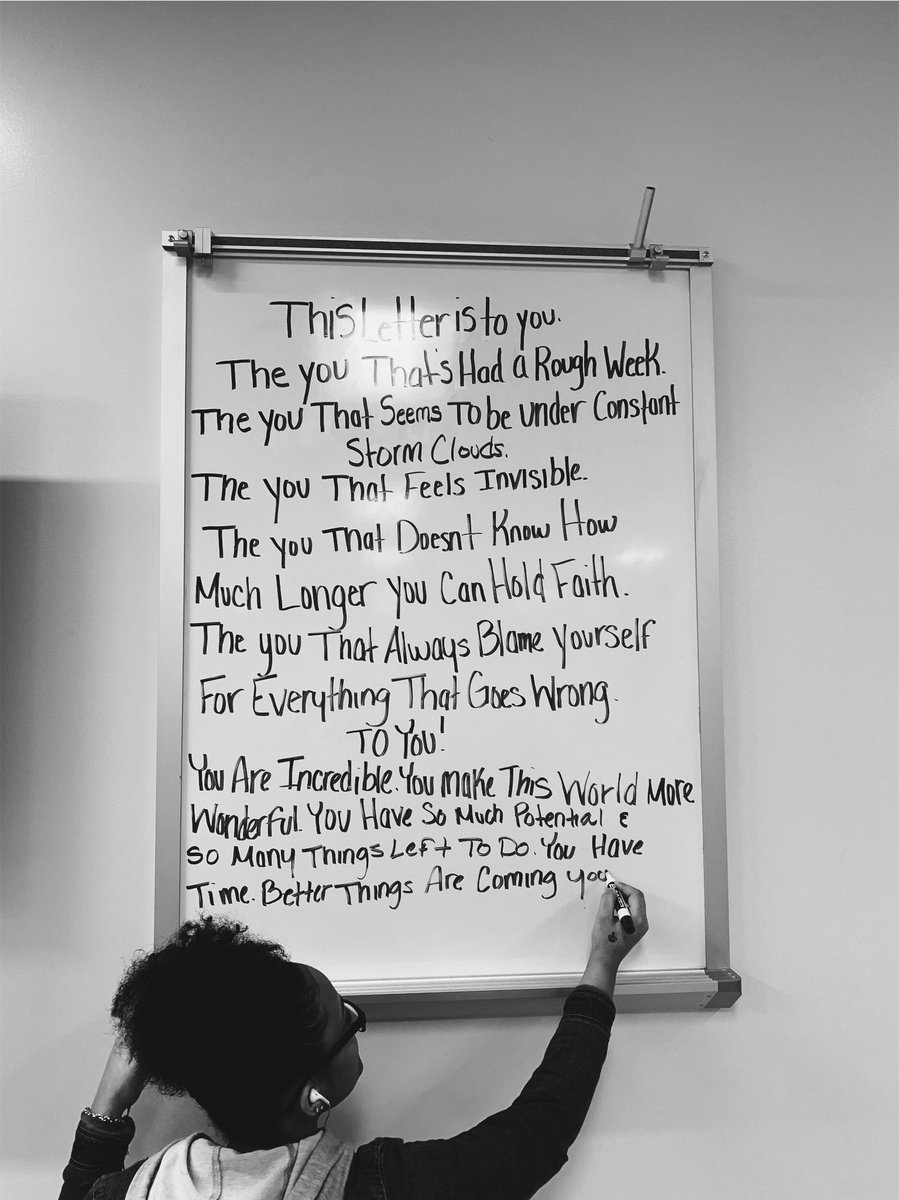 This Letter is to you.
The you That's Had a Rough Week.
The you That Seems To be under Constant
Storm Clouds.
The you That Feels Invisible.
The you That Doesnt Know How
Much Longer you Can Hold Faith.
The you That Always Blame yourself
For Everything That Goes Wrong.
TO YOU!
You Are Incredible. You make This World More
Wonderful. You Have So Much Potential &
So Many Things Left To Do. You Have
Time. Better Things Are Coming you